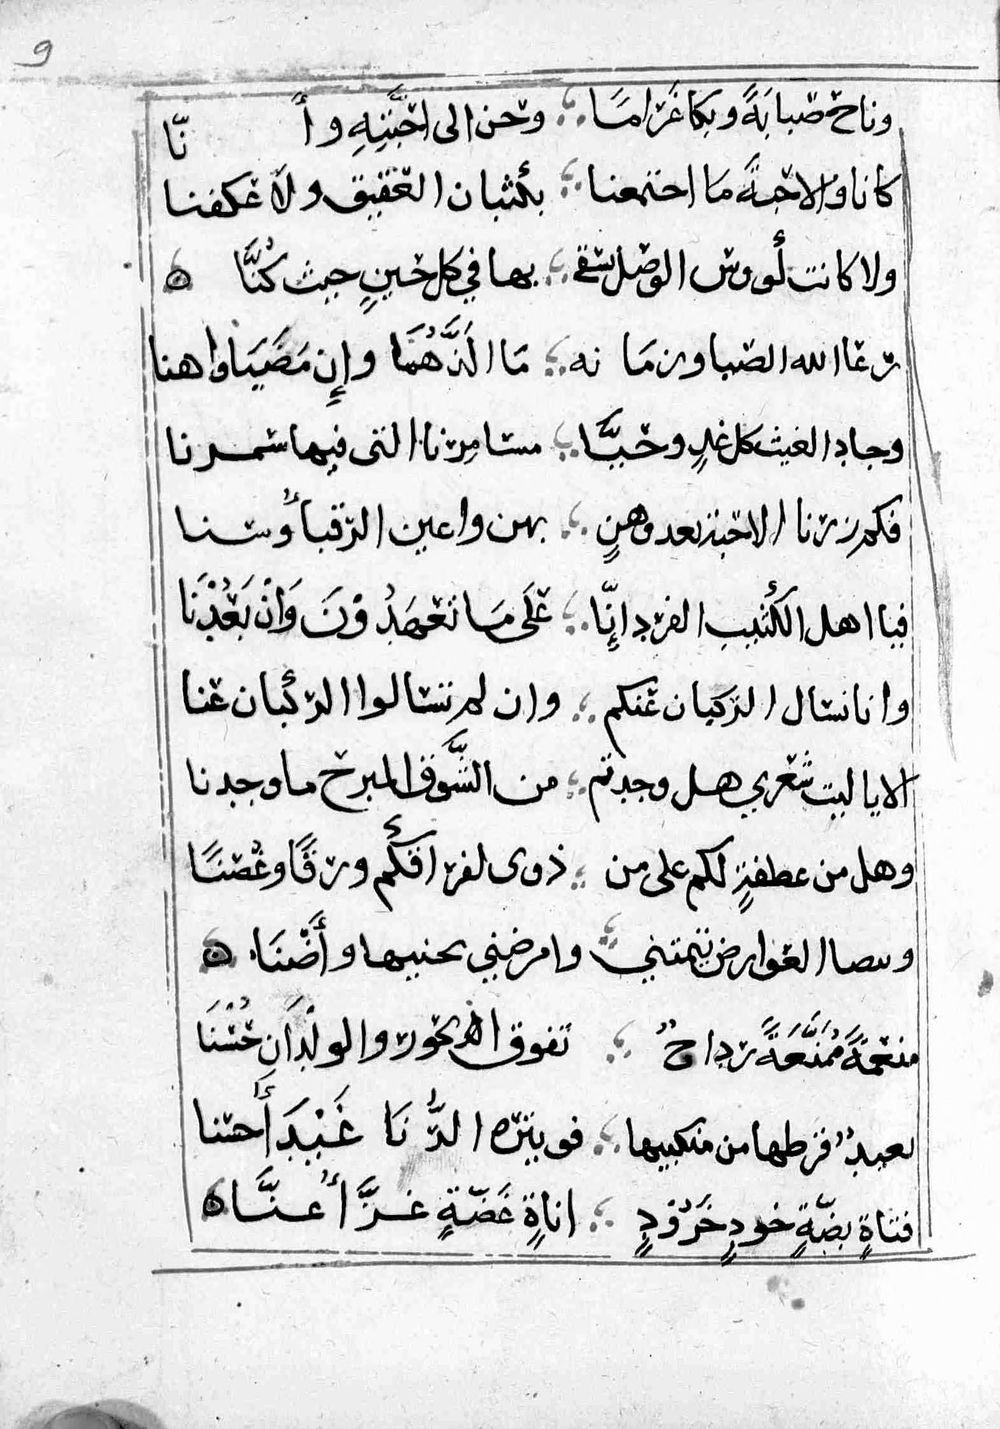 9
وناح صبابَةً وبكا غَرامَا ؛ وحن الى احبَّتِهِ وأَنّا
كانا والاحبةَ مَا اجتمعنا ؛ بكُثبان العقيق ولا عكفنا
ولا كانت لُووس الوصل تسقى ؛ بها في كل حينٍ حيث كُنَّا ه
رعا الله الصبا وزمَانه ؛ مَا الَذَّهُمَا وإِن مَضَيَا واهنا
وجاد الغيث كل غدٍ وحَيَّا ؛ مسامِرنا التى فيها سمرنا
فكم زرنا الاحبة بعد وهنٍ ؛ بهن واعين الرقباءُ وسنا
فيا اهل الكُثيب الفرد انِّا ؛ عَلَى مَا تعهَدُوْنَ وَانْ بَعُدْنَا
وانا نسال الركبان عنكم ؛ وان لم تسالوا الرُكبان عنا
الا ياليت شعري هل وجدتم ؛ من الشَّوق المبرح ما وجدنا
وهل من عطفةٍ لكم على من ؛ ذوى لفراقكُم ورقًا وغُصْنًا
العوارض تيمتني ؛ وامرضني بحنيها وأَضْنَا ه
منعمَةً مُمَنَّعَةً رداحٌ ؛ تفوق الحور والولْدَان حُسْنَا
بعيدٌ قرطها من منكبيها ؛ فويتره الرُّنَا غَيْدَ أَحسنا
فتاةٍ بضّةٍ خودٍ خَرُوْدٍ ؛ اناةٍ غَضّةٍ غرَّاُ عنَّا ه